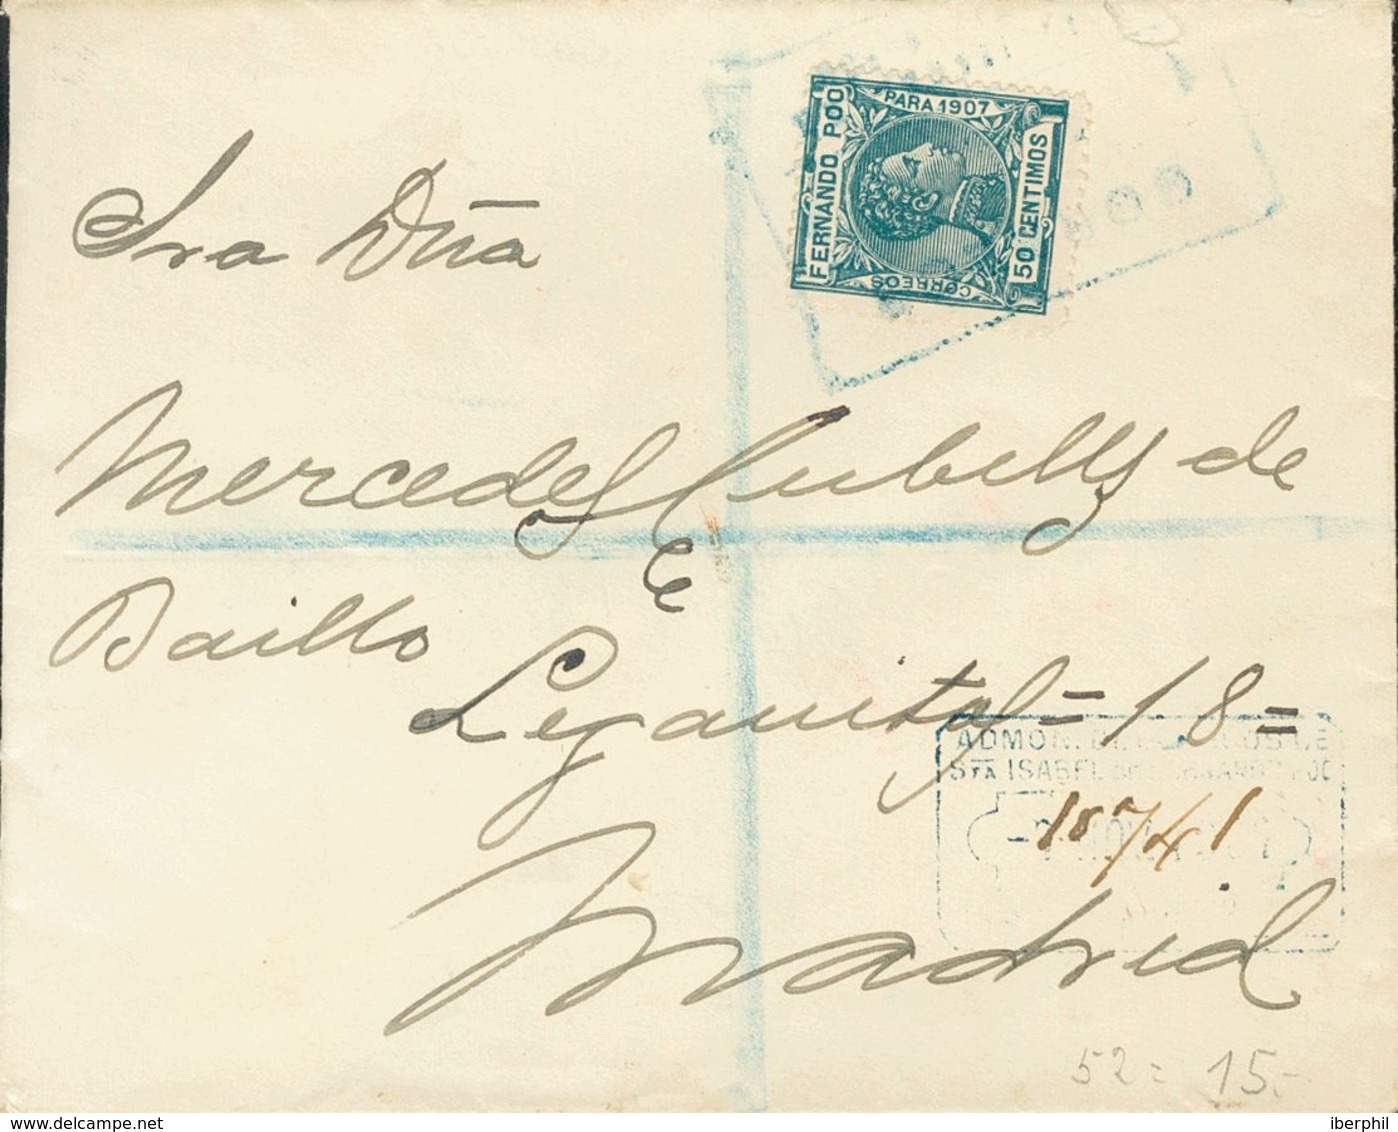 PARA 1907
FERNANDO POO
50 CENTIMOS
CORREOS
Sra Dña
Mercedes Cubells de
Baillo
Leganitos = 18 =
ADMON.
STA ISABEL
Madrid
52 = 15.-
delcampe.net
iberphil